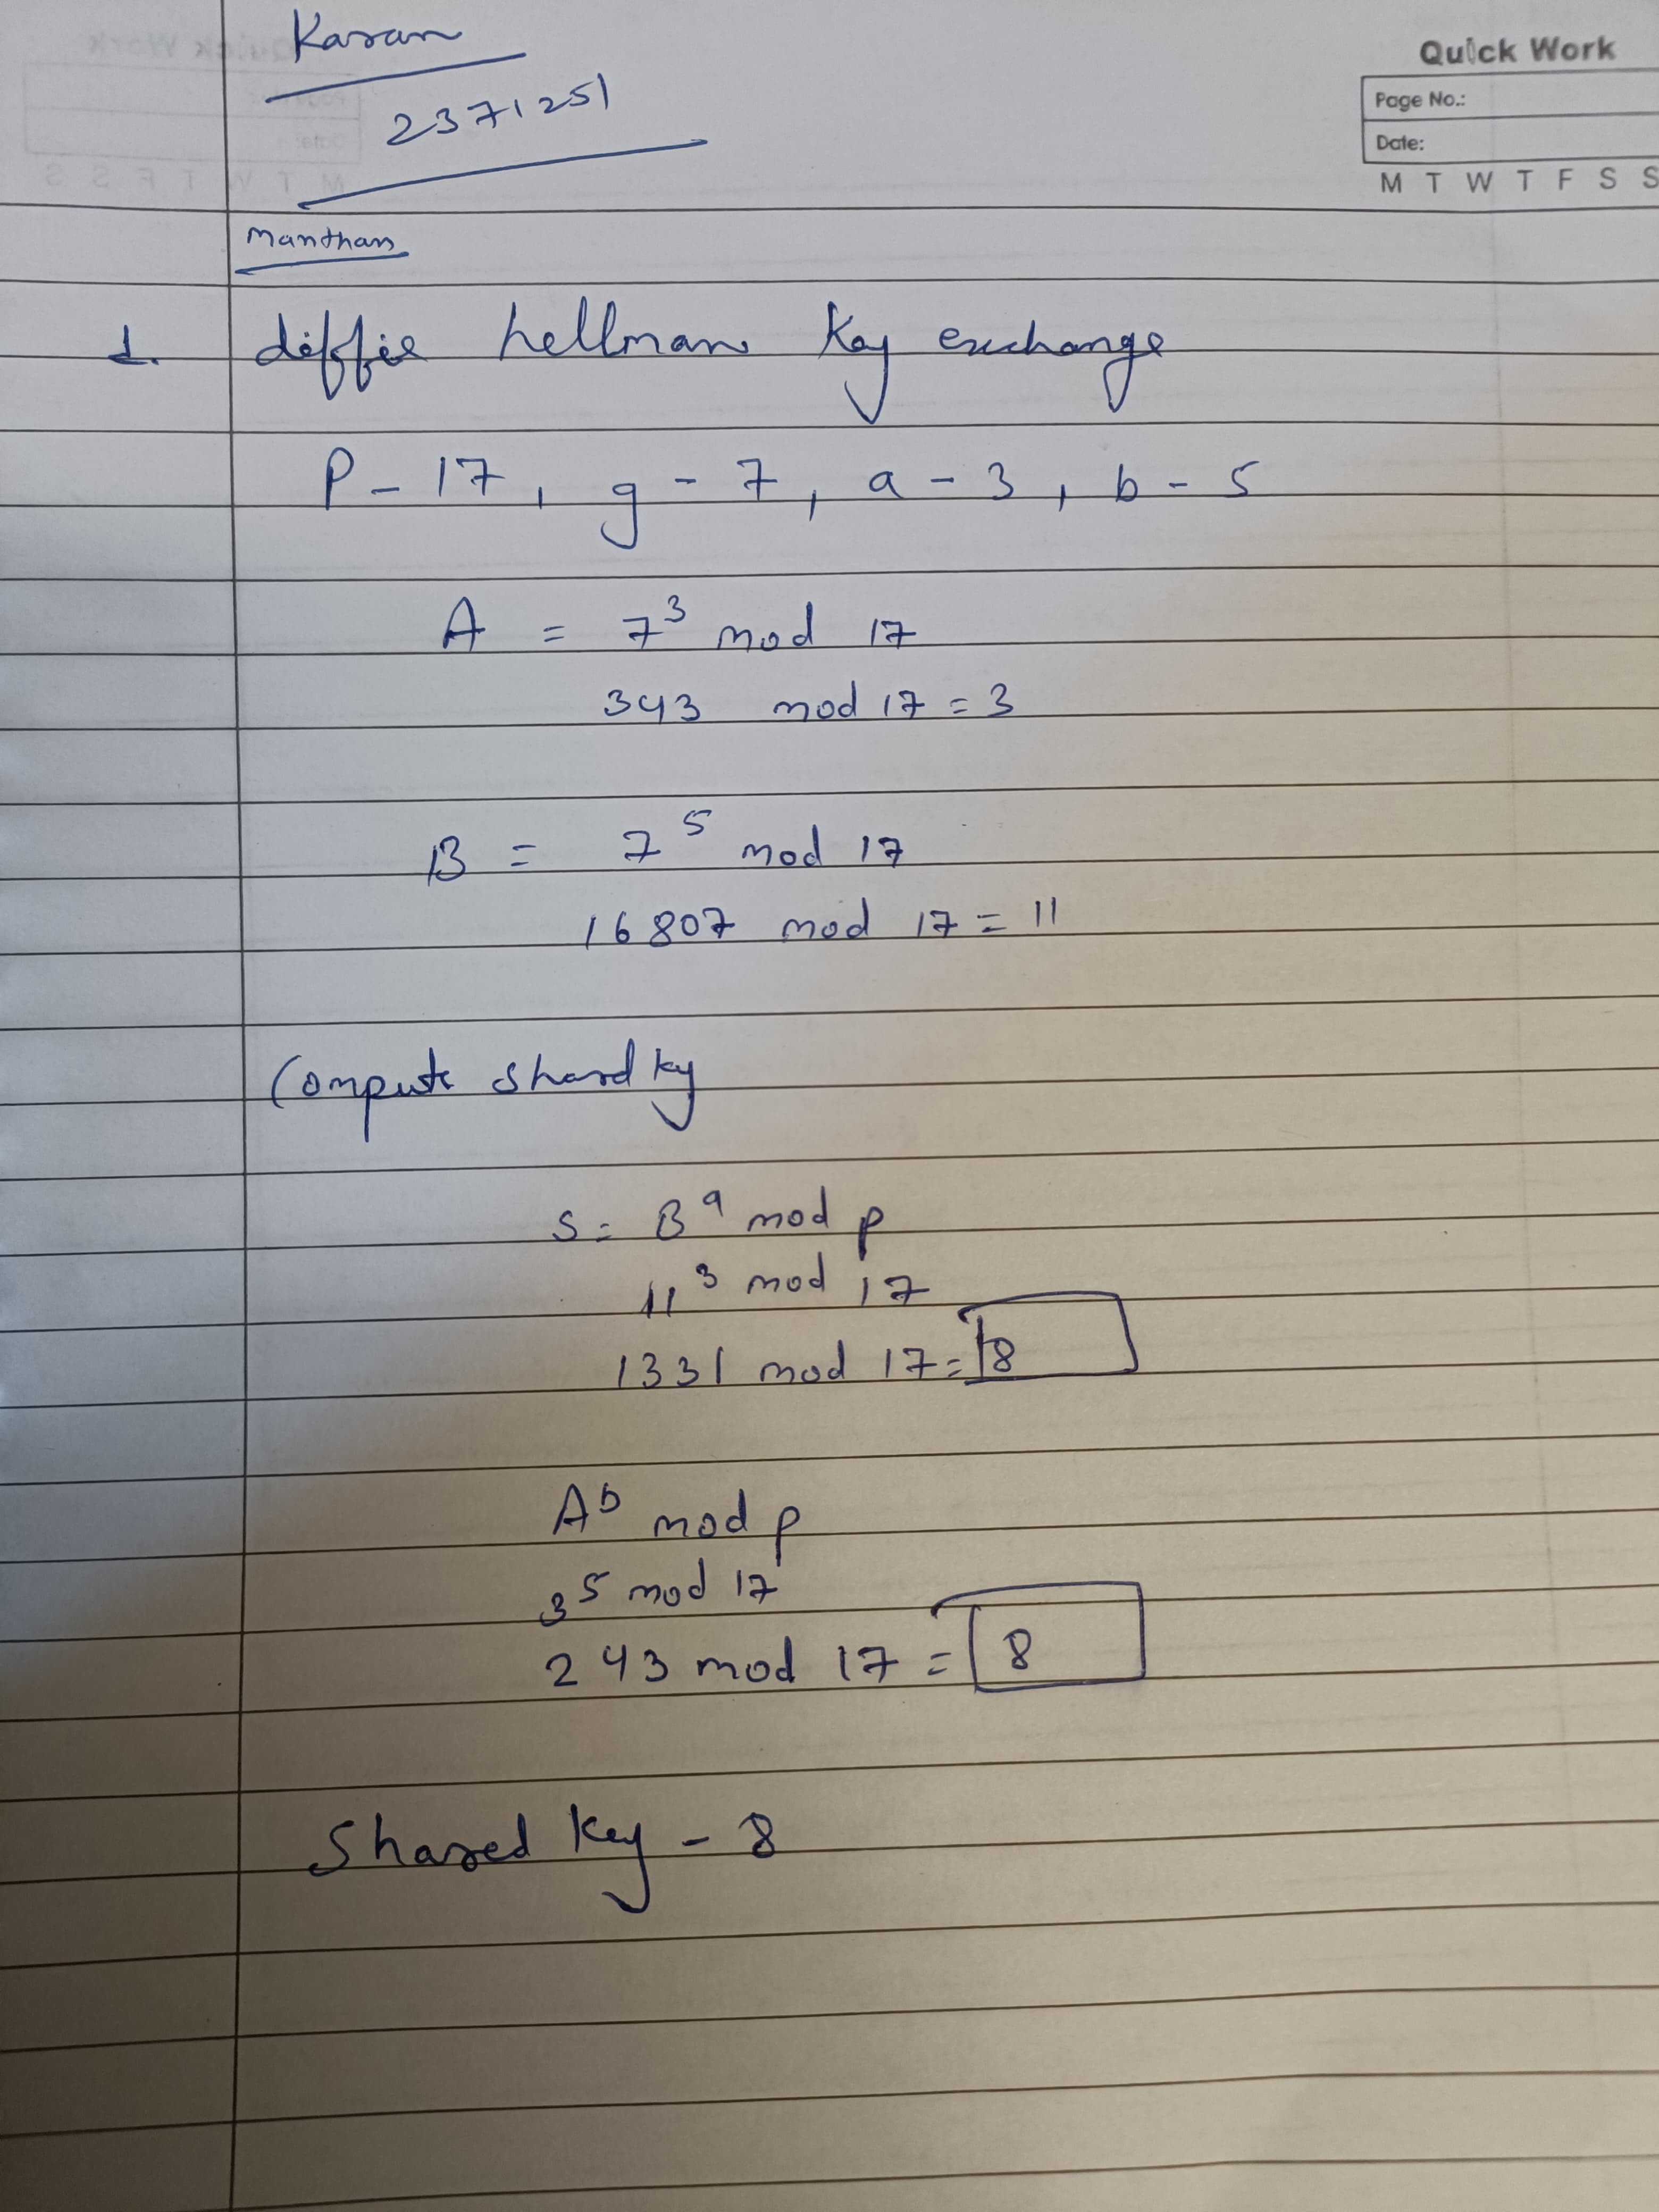 Karan
2371251
Quick Work
Page No.:
Date:
M T W T F S S
Manthan
1. diffie hellman Key exchange
P - 17, g - 7, a - 3, b - 5
A = 7³ mod 17
343 mod 17 = 3
B = 7⁵ mod 17
16807 mod 17 = 11
Compute shared key
S = Bᵃ mod p
11³ mod 17
1331 mod 17 = 8
Aᵇ mod p
3⁵ mod 17
243 mod 17 = 8
Shared Key - 8